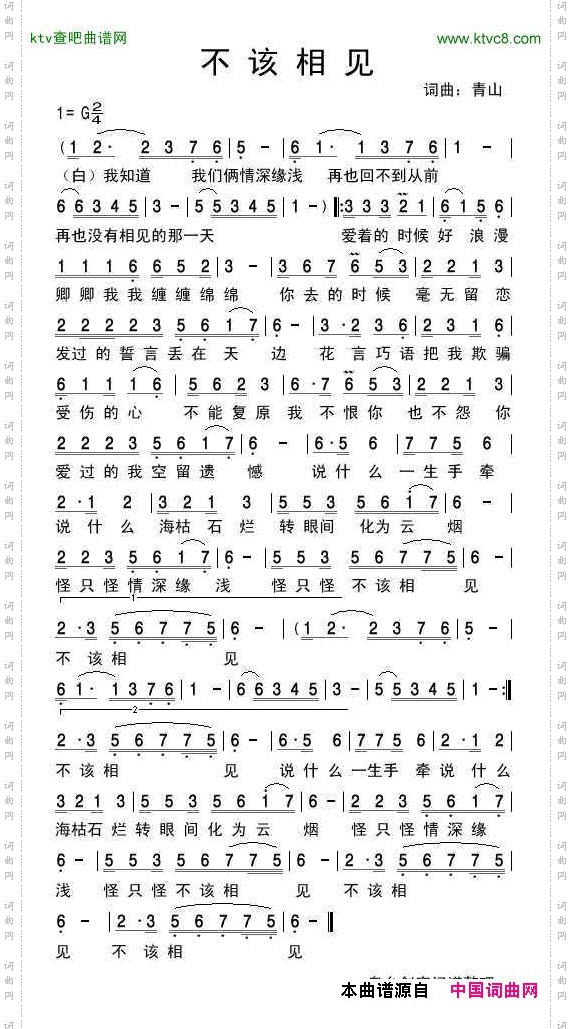 ktv查吧曲谱网
www.ktvc8.com
不该相见
词曲：青山
1= G 2/4
(1 2· 2 3 7 6 | 5 - | 6 1· 1 3 7 6 | 1 - |
（白）我知道 我们俩情深缘浅 再也回不到从前
6 6 3 4 5 | 3 - | 5 5 3 4 5 | 1 - ) ‖: 3 3 3 2 1 | 6 1 5 6 |
再也没有相见的那一天 爱着的 时候 好 浪漫
1 1 1 6 6 5 2 | 3 - | 3 6 7 6 5 3 | 2 2 1 3 |
卿卿我我缠缠绵绵 你去的时候 毫无留恋
2 2 2 2 3 5 6 1 7 | 6 - | 3· 2 3 6 | 5 5 5 2 3 |
发过的誓言丢在天 边 花言巧语把我欺骗
6 1 1 1 6 | 5 6 2 3 | 6· 7 6 5 3 | 2 2 1 3 |
受伤的心 不能复原 我不恨你 也不怨你
2 2 2 3 5 6 1 7 | 6 - | 6· 5 6 | 7 7 5 6 7 |
爱过的我空留遗 憾 说什么一生手牵
2· 1 2 | 3 2 1 3 | 5 5 3 5 6 1 7 | 6 - |
说什么 海枯石烂 转眼间 化为云 烟
2 2 3 5 6 1 7 | 6 - | 5 5 3 5 6 7 7 5 | 6 - |
怪只怪情深缘 浅 怪只怪 不该相 见
1
2· 3 5 6 7 7 5 | 6 - | (1 2· 2 3 7 6 | 5 - |
不该相 见
6 1· 1 3 7 6 | 1 - | 6 6 3 4 5 | 3 - | 5 5 3 4 5 | 1 - :‖
2
2· 3 5 6 7 7 5 | 6 - | 6· 5 6 | 7 7 5 6 7 | 2· 1 2 |
不该相 见 说什么一生手 牵说什么
3 2 1 3 | 5 5 3 5 6 1 7 | 6 - | 5 5 3 5 6 1 7 |
海枯石烂转眼间化为云 烟 怪只怪情深缘
6 - | 5 5 3 5 6 7 7 5 | 6 - | 2· 3 5 6 7 7 5 |
浅 怪只怪不该相 见 不该相
6 - | 2· 3 5 6 7 7 5 | 6 - ‖
见 不该相 见
本曲谱源自 中国词曲网
词曲网